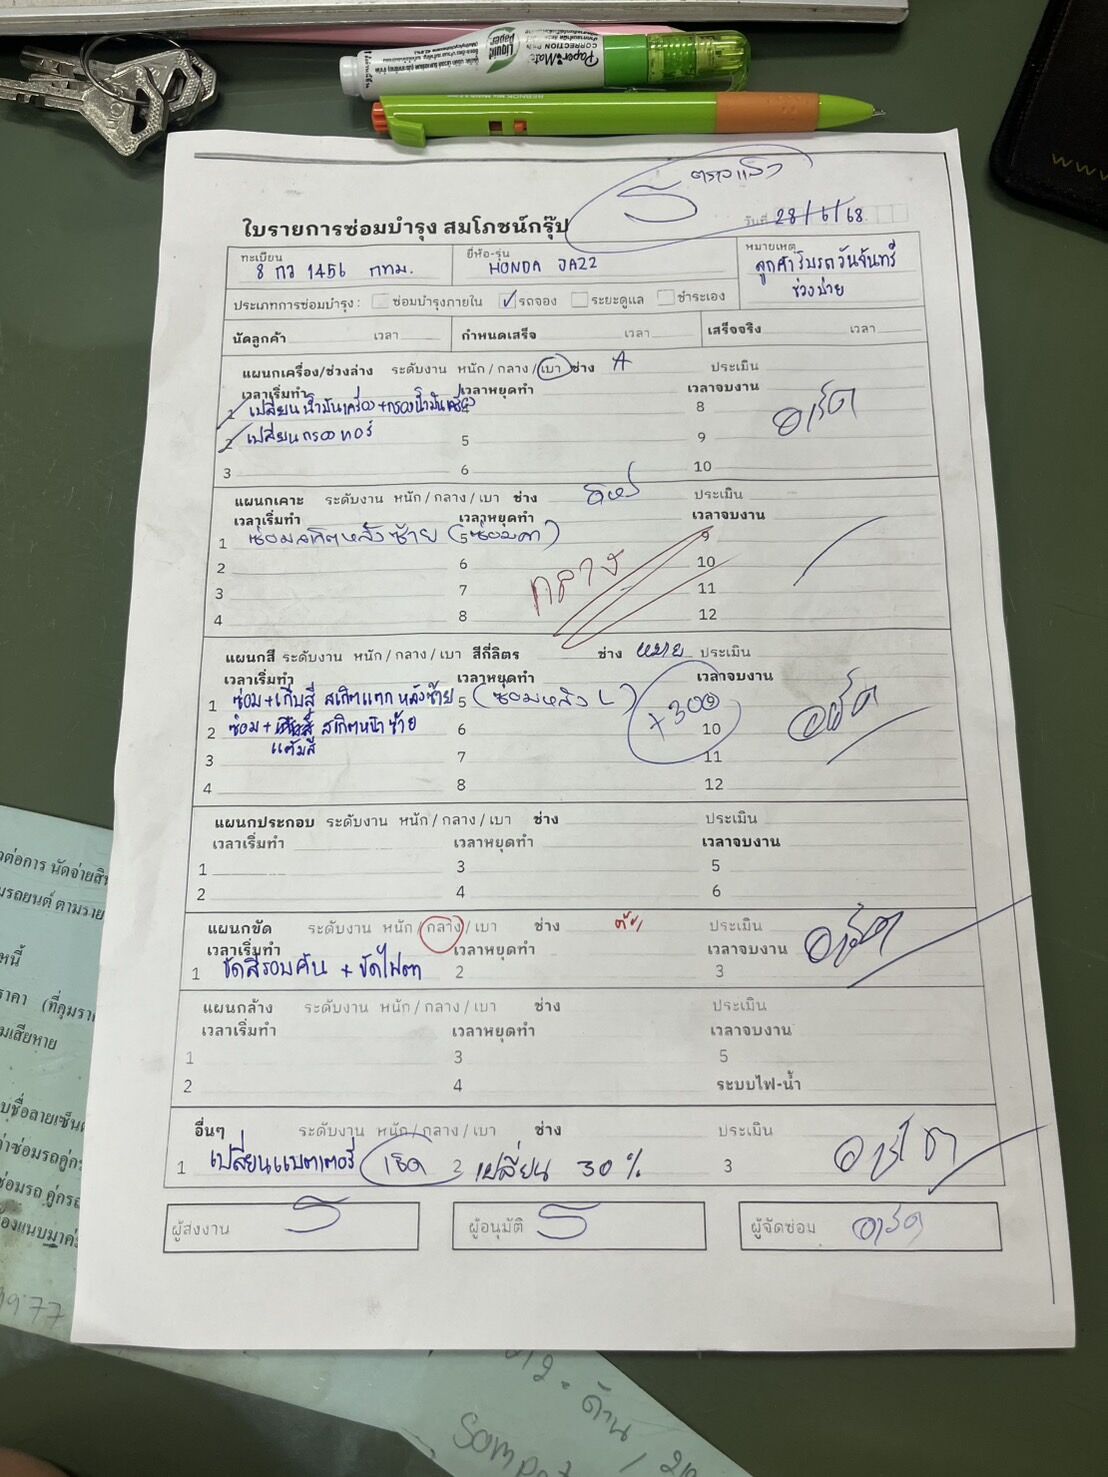 Paper Mate
CORRECTION PEN
Liquid Paper
ตรวจแล้ว
ใบรายการซ่อมบำรุง สมโภชน์กรุ๊ป
วันที่ 28/6/68
ทะเบียน 8 กว 1456 กทม.
ยี่ห้อ-รุ่น HONDA JAZZ
หมายเหตุ ลูกค้ารับรถวันจันทร์
ช่วงบ่าย
ประเภทการซ่อมบำรุง: ซ่อมบำรุงภายใน ✓ รถจอง ระยะดูแล ชำระเอง
นัดลูกค้า เวลา กำหนดเสร็จ เวลา เสร็จจริง เวลา
แผนกเครื่อง/ช่วงล่าง ระดับงาน หนัก / กลาง / เบา ช่าง A ประเมิน
เวลาเริ่มทำ เวลาหยุดทำ เวลาจบงาน
1 เปลี่ยนน้ำมันเครื่อง+กรองน้ำมันเครื่อง 8 อาร์ต
2 เปลี่ยนกรองแอร์ 5 9
3 6 10
แผนกเคาะ ระดับงาน หนัก / กลาง / เบา ช่าง ประเมิน
เวลาเริ่มทำ เวลาหยุดทำ เวลาจบงาน
1 ซ่อมสเกิตหลังซ้าย 5 9
2 6 10
กลาง
3 7 11
4 8 12
แผนกสี ระดับงาน หนัก / กลาง / เบา สีกี่ลิตร ช่าง หมาย ประเมิน
เวลาเริ่มทำ เวลาหยุดทำ เวลาจบงาน
1 ซ่อม+เก็บสี สเกิตแตก หลังซ้าย 5 (ซ่อมหลัง L) +300 อาร์ต
2 ซ่อม+ สเกิตหน้าซ้าย 6 10
แต้มสี
3 7 11
4 8 12
แผนกประกอบ ระดับงาน หนัก / กลาง / เบา ช่าง ประเมิน
เวลาเริ่มทำ เวลาหยุดทำ เวลาจบงาน
1 3 5
2 4 6
แผนกขัด ระดับงาน หนัก / กลาง / เบา ช่าง ประเมิน
เวลาเริ่มทำ เวลาหยุดทำ เวลาจบงาน อาร์ต
1 ขัดสีรอบคัน + ขัดไฟตา 2 3
แผนกล้าง ระดับงาน หนัก / กลาง / เบา ช่าง ประเมิน
เวลาเริ่มทำ เวลาหยุดทำ เวลาจบงาน
1 3 5
2 4 ระบบไฟ-น้ำ
อื่นๆ ระดับงาน หนัก / กลาง / เบา ช่าง ประเมิน
1 เปลี่ยนแบตเตอรี่ เช็ค 2 เปลี่ยน 30% 3 อาร์ต
ผู้ส่งงาน ผู้อนุมัติ ผู้จัดซ่อม อาร์ต